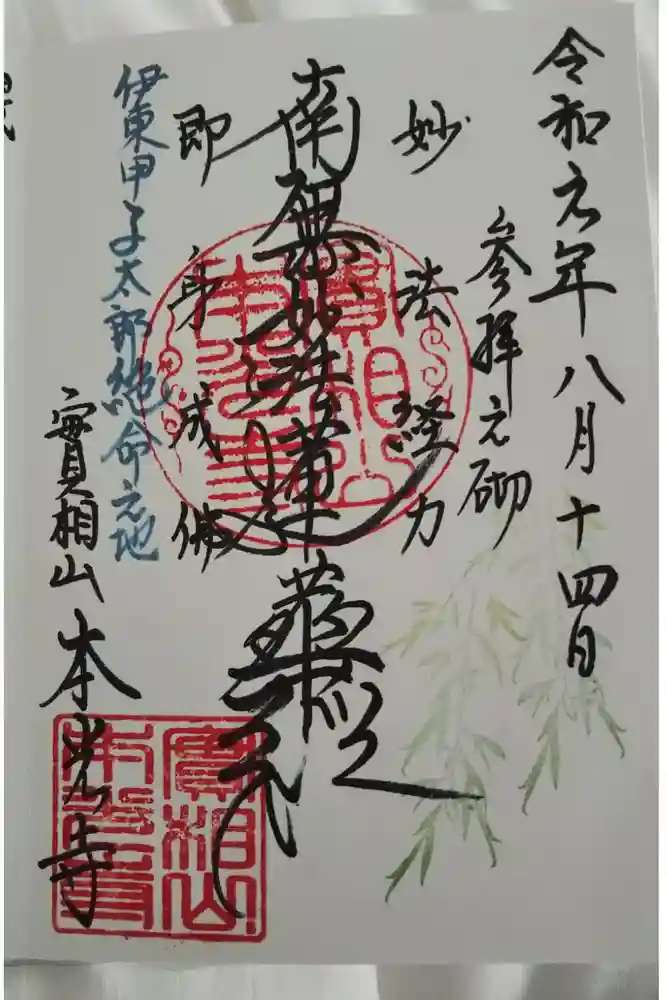 令和元年八月十四日
参拝之砌
妙法経力
南無妙法蓮華経
即身成佛
伊東甲子太郎絶命之地
實相山
本光寺
實相山
本光寺
實相山
本光寺